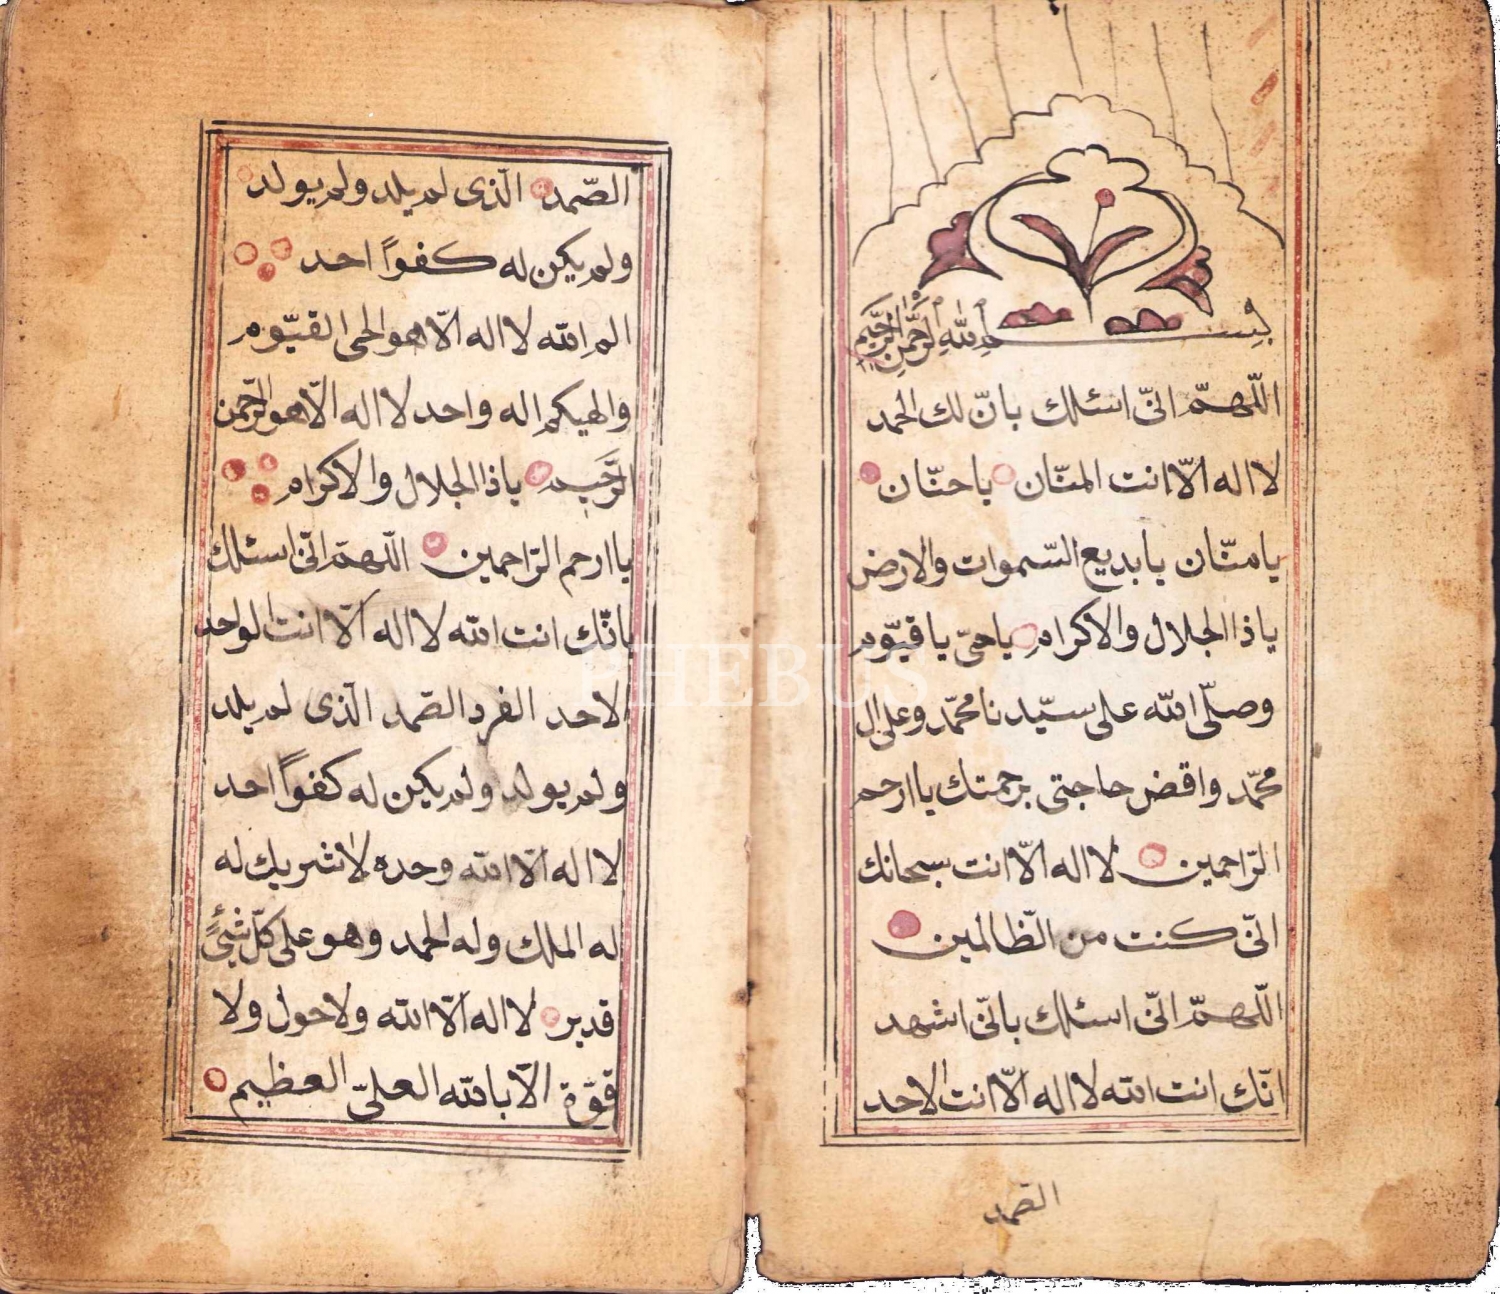 بسم الله الرحمن الرحيم
اللّهمّ انّى اسئلك بانّ لك الحمد
لا اله الّا انت المنّان يا حنّان
يا منّان يا بديع السّموات والارض
يا ذا الجلال والاكرام يا حىّ يا قيّوم
وصلّى الله على سيّدنا محمّد وعلى ال
محمّد واقض حاجتى برحمتك يا ارحم
الرّاحمين لا اله الّا انت سبحانك
انّى كنت من الظّالمين
اللّهمّ انّى اسئلك بانّى اشهد
انّك انت الله لا اله الّا انت الاحد
الصّمد
الصّمد الّذى لم يلد ولم يولد
ولم يكن له كفواً احد
الم الله لا اله الّا هو الحى القيّوم
والهيكم اله واحد لا اله الّا هو الرّحمن
الرّحيم يا ذا الجلال والاكرام
يا ارحم الرّاحمين اللّهمّ انّى اسئلك
بانّك انت الله لا اله الّا انت الواحد
الاحد الفرد الصّمد الّذى لم يلد
ولم يولد ولم يكن له كفواً احد
لا اله الّا الله وحده لا شريك له
له الملك وله الحمد وهو على كلّ شئٍ
قدير لا اله الّا الله ولا حول ولا
قوّة الّا بالله العلىّ العظيم
PHEBUS